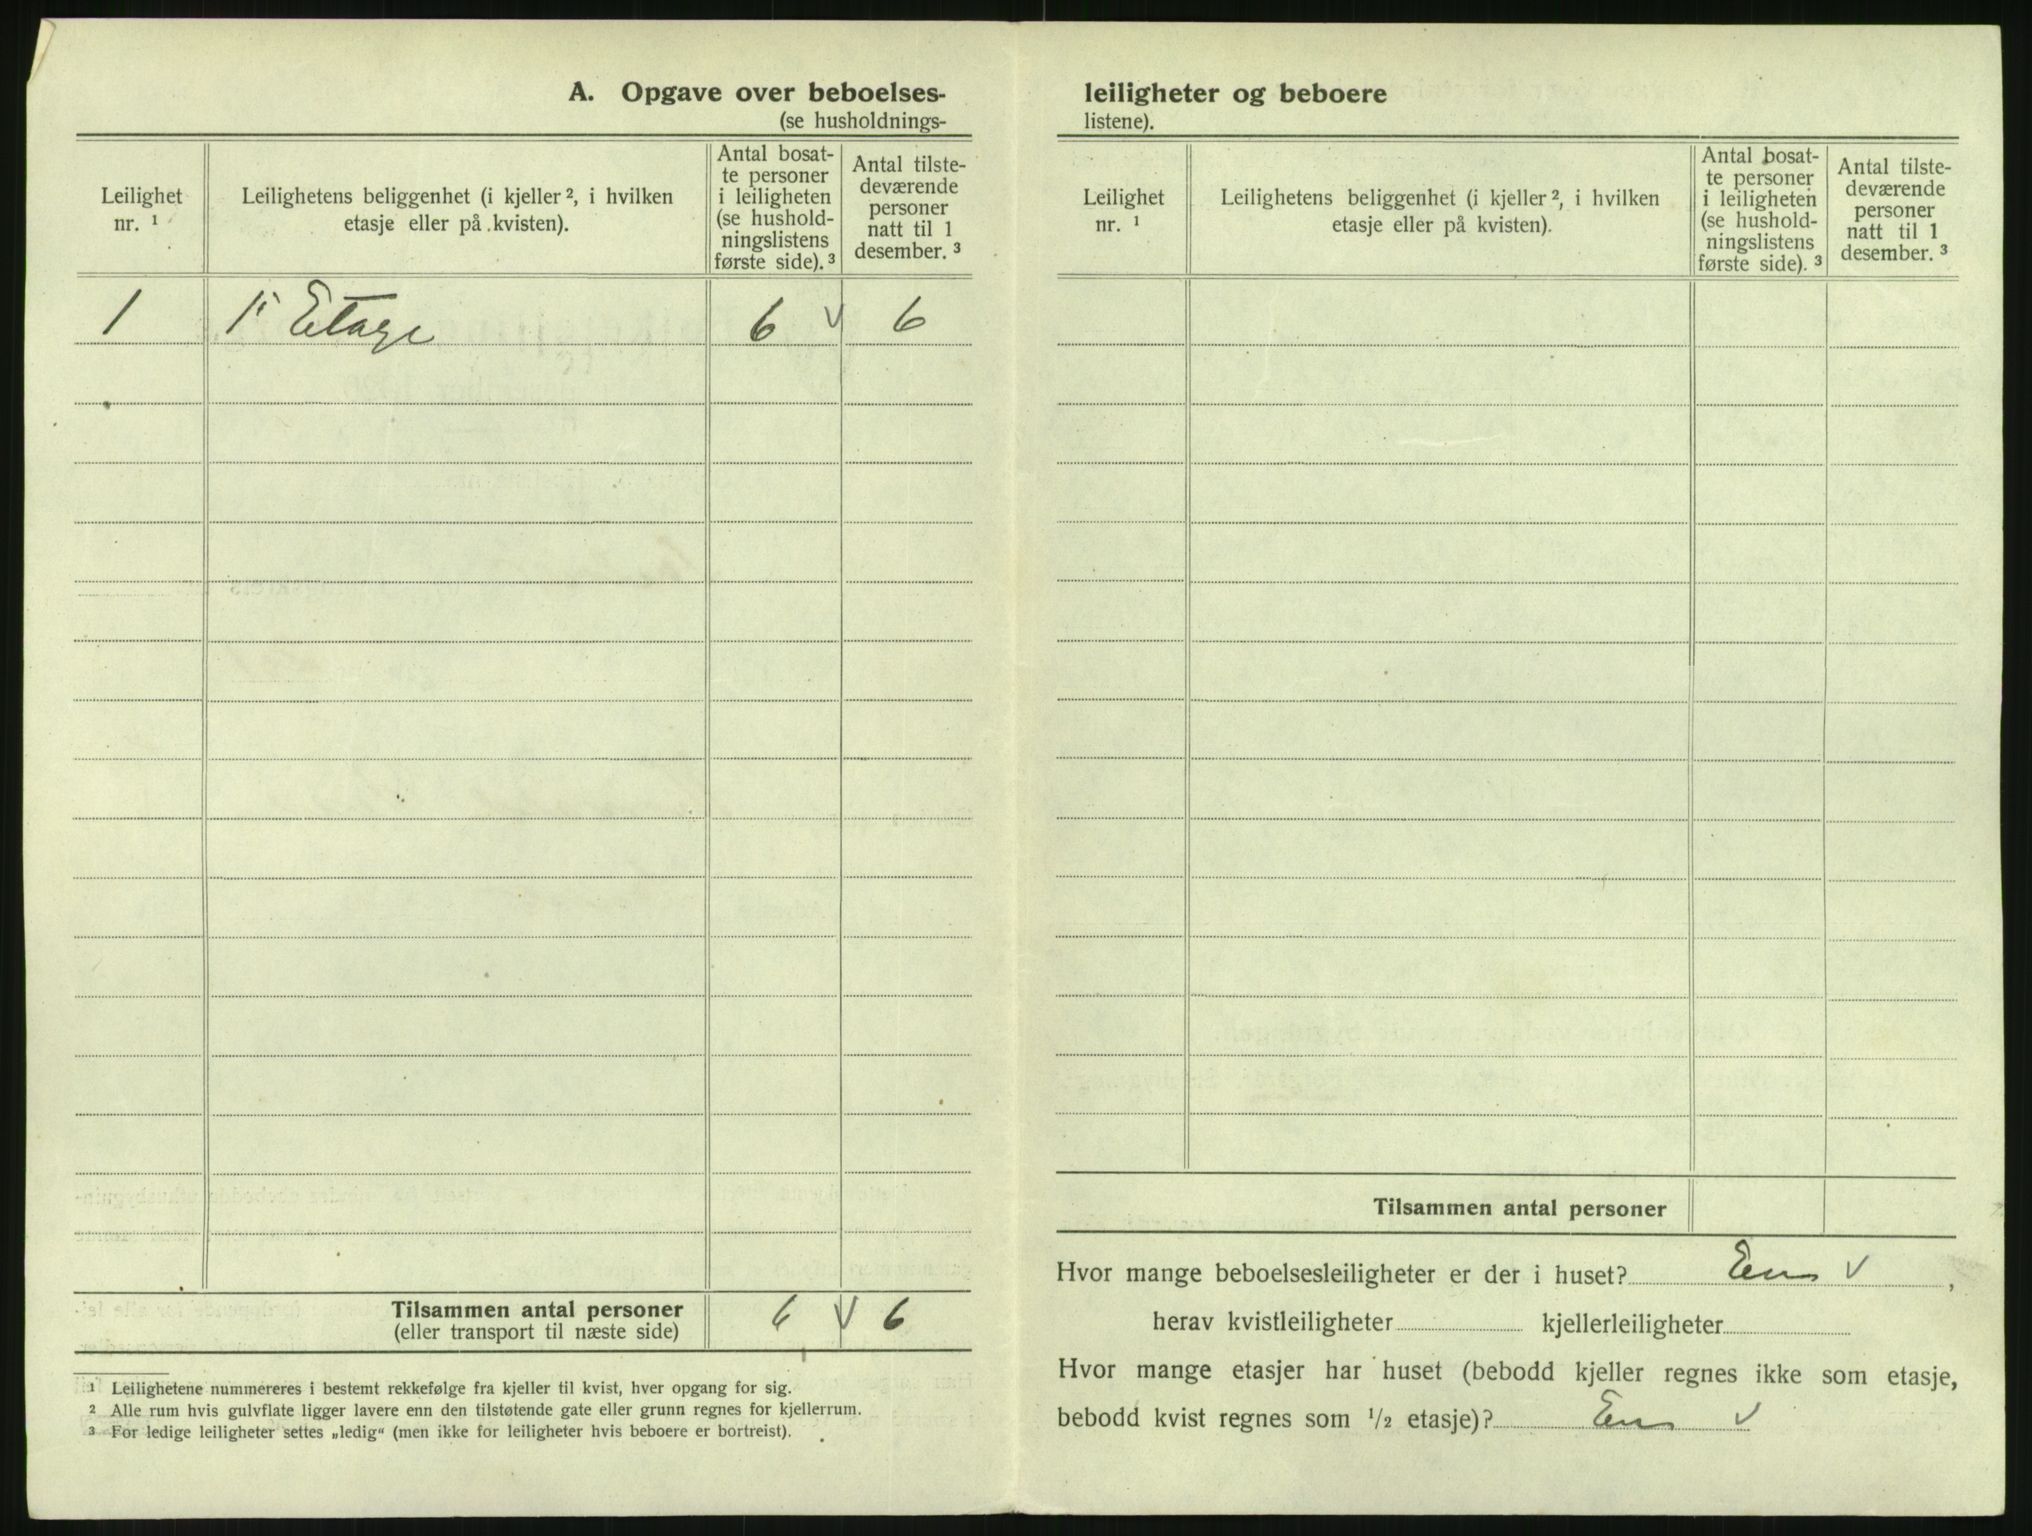 A. Opgave over beboelses-
(se husholdnings-
Leilighet
nr. ¹
Leilighetens beliggenhet (i kjeller ², i hvilken
etasje eller på kvisten).
Antal bosat-
te personer
i leiligheten
(se hushold-
ningslistens
første side). ³
Antal tilste-
deværende
personer
natt til 1
desember. ³
1 1' Etage 6 v 6
Tilsammen antal personer 6 v 6
(eller transport til næste side)
¹ Leilighetene nummereres i bestemt rekkefølge fra kjeller til kvist, hver opgang for sig.
² Alle rum hvis gulvflate ligger lavere enn den tilstøtende gate eller grunn regnes for kjellerrum.
³ For ledige leiligheter settes „ledig“ (men ikke for leiligheter hvis beboere er bortreist).
leiligheter og beboere
listene).
Leilighet
nr. ¹
Leilighetens beliggenhet (i kjeller ², i hvilken
etasje eller på kvisten).
Antal bosat-
te personer
i leiligheten
(se hushold-
ningslistens
første side). ³
Antal tilste-
deværende
personer
natt til 1
desember. ³
Tilsammen antal personer
Hvor mange beboelsesleiligheter er der i huset? Een v ,
herav kvistleiligheter kjellerleiligheter
Hvor mange etasjer har huset (bebodd kjeller regnes ikke som etasje,
bebodd kvist regnes som ½ etasje)? Een v